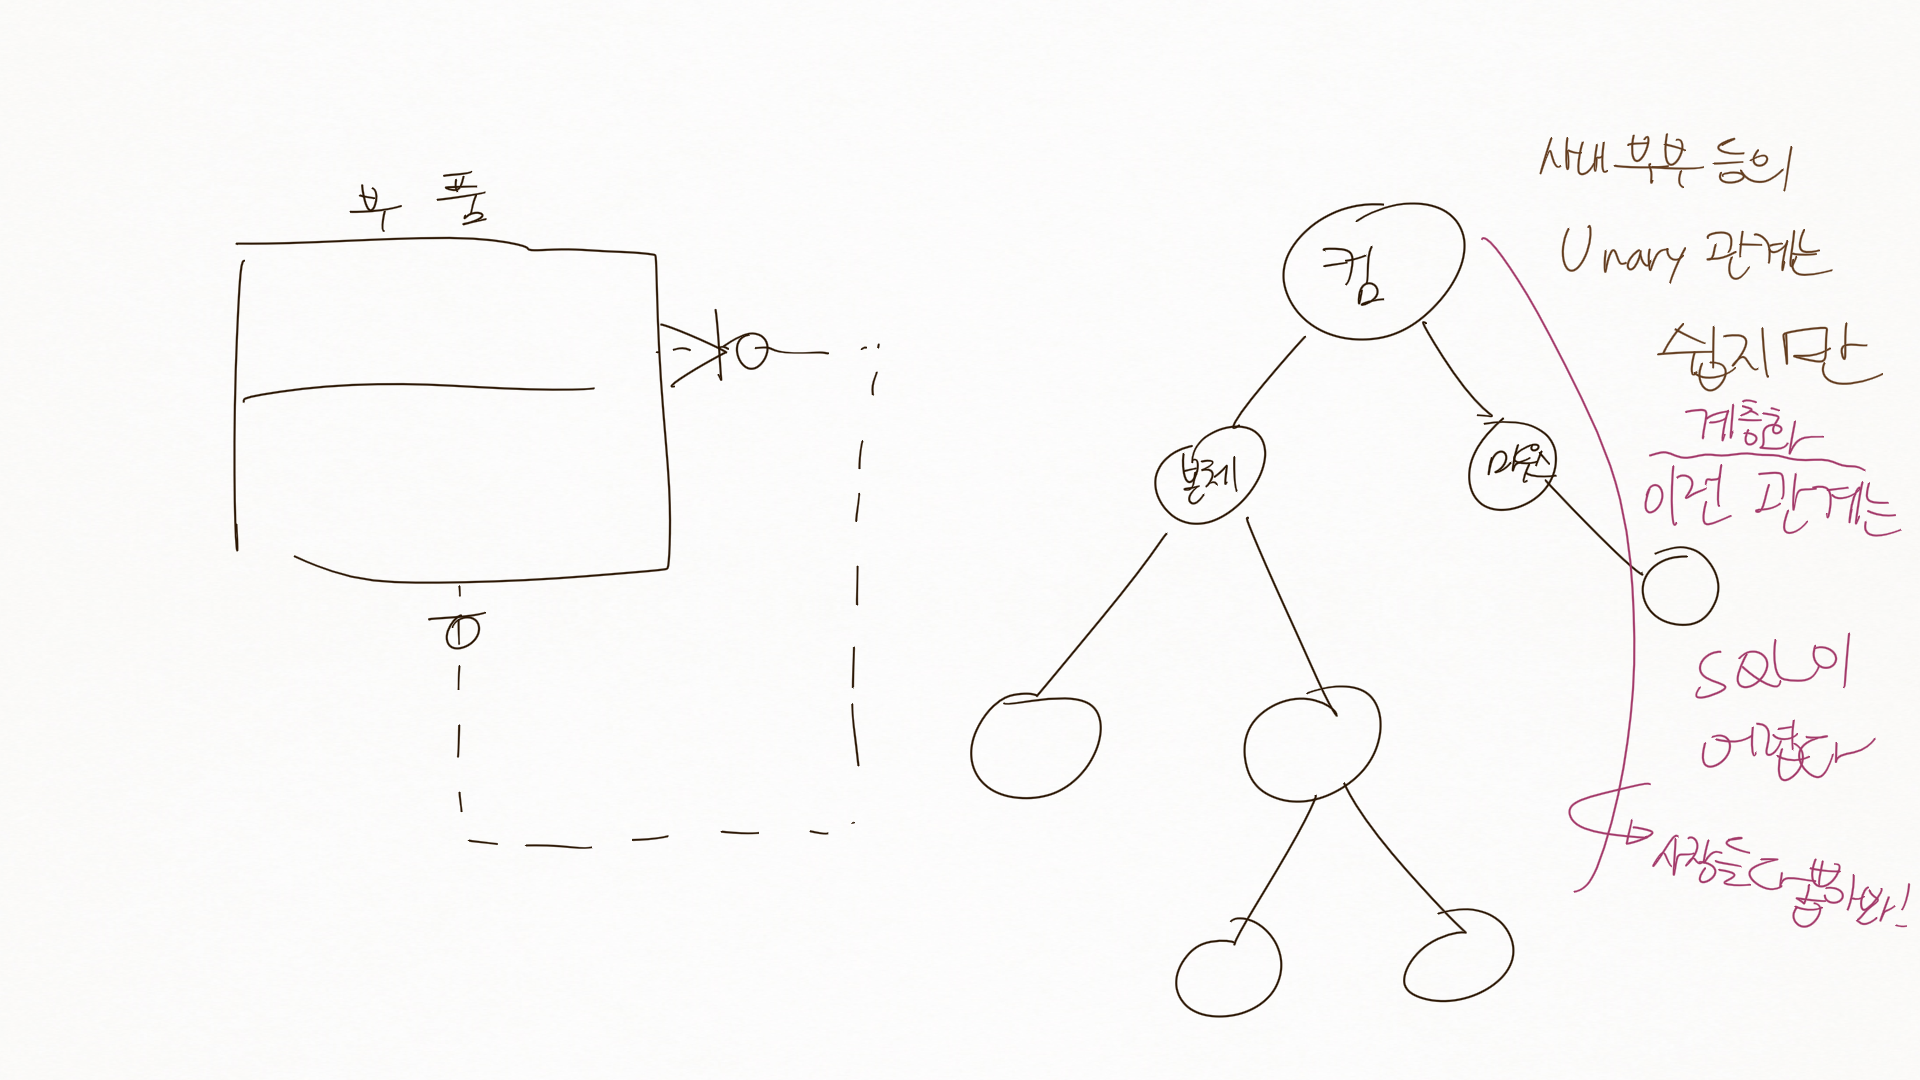 부 품
컴
본체
마우스
사내 부부 등의
Unary 관계는
쉽지만
계층화
이런 관계는
SQL이
어렵다
사장들 다 뽑아봐!